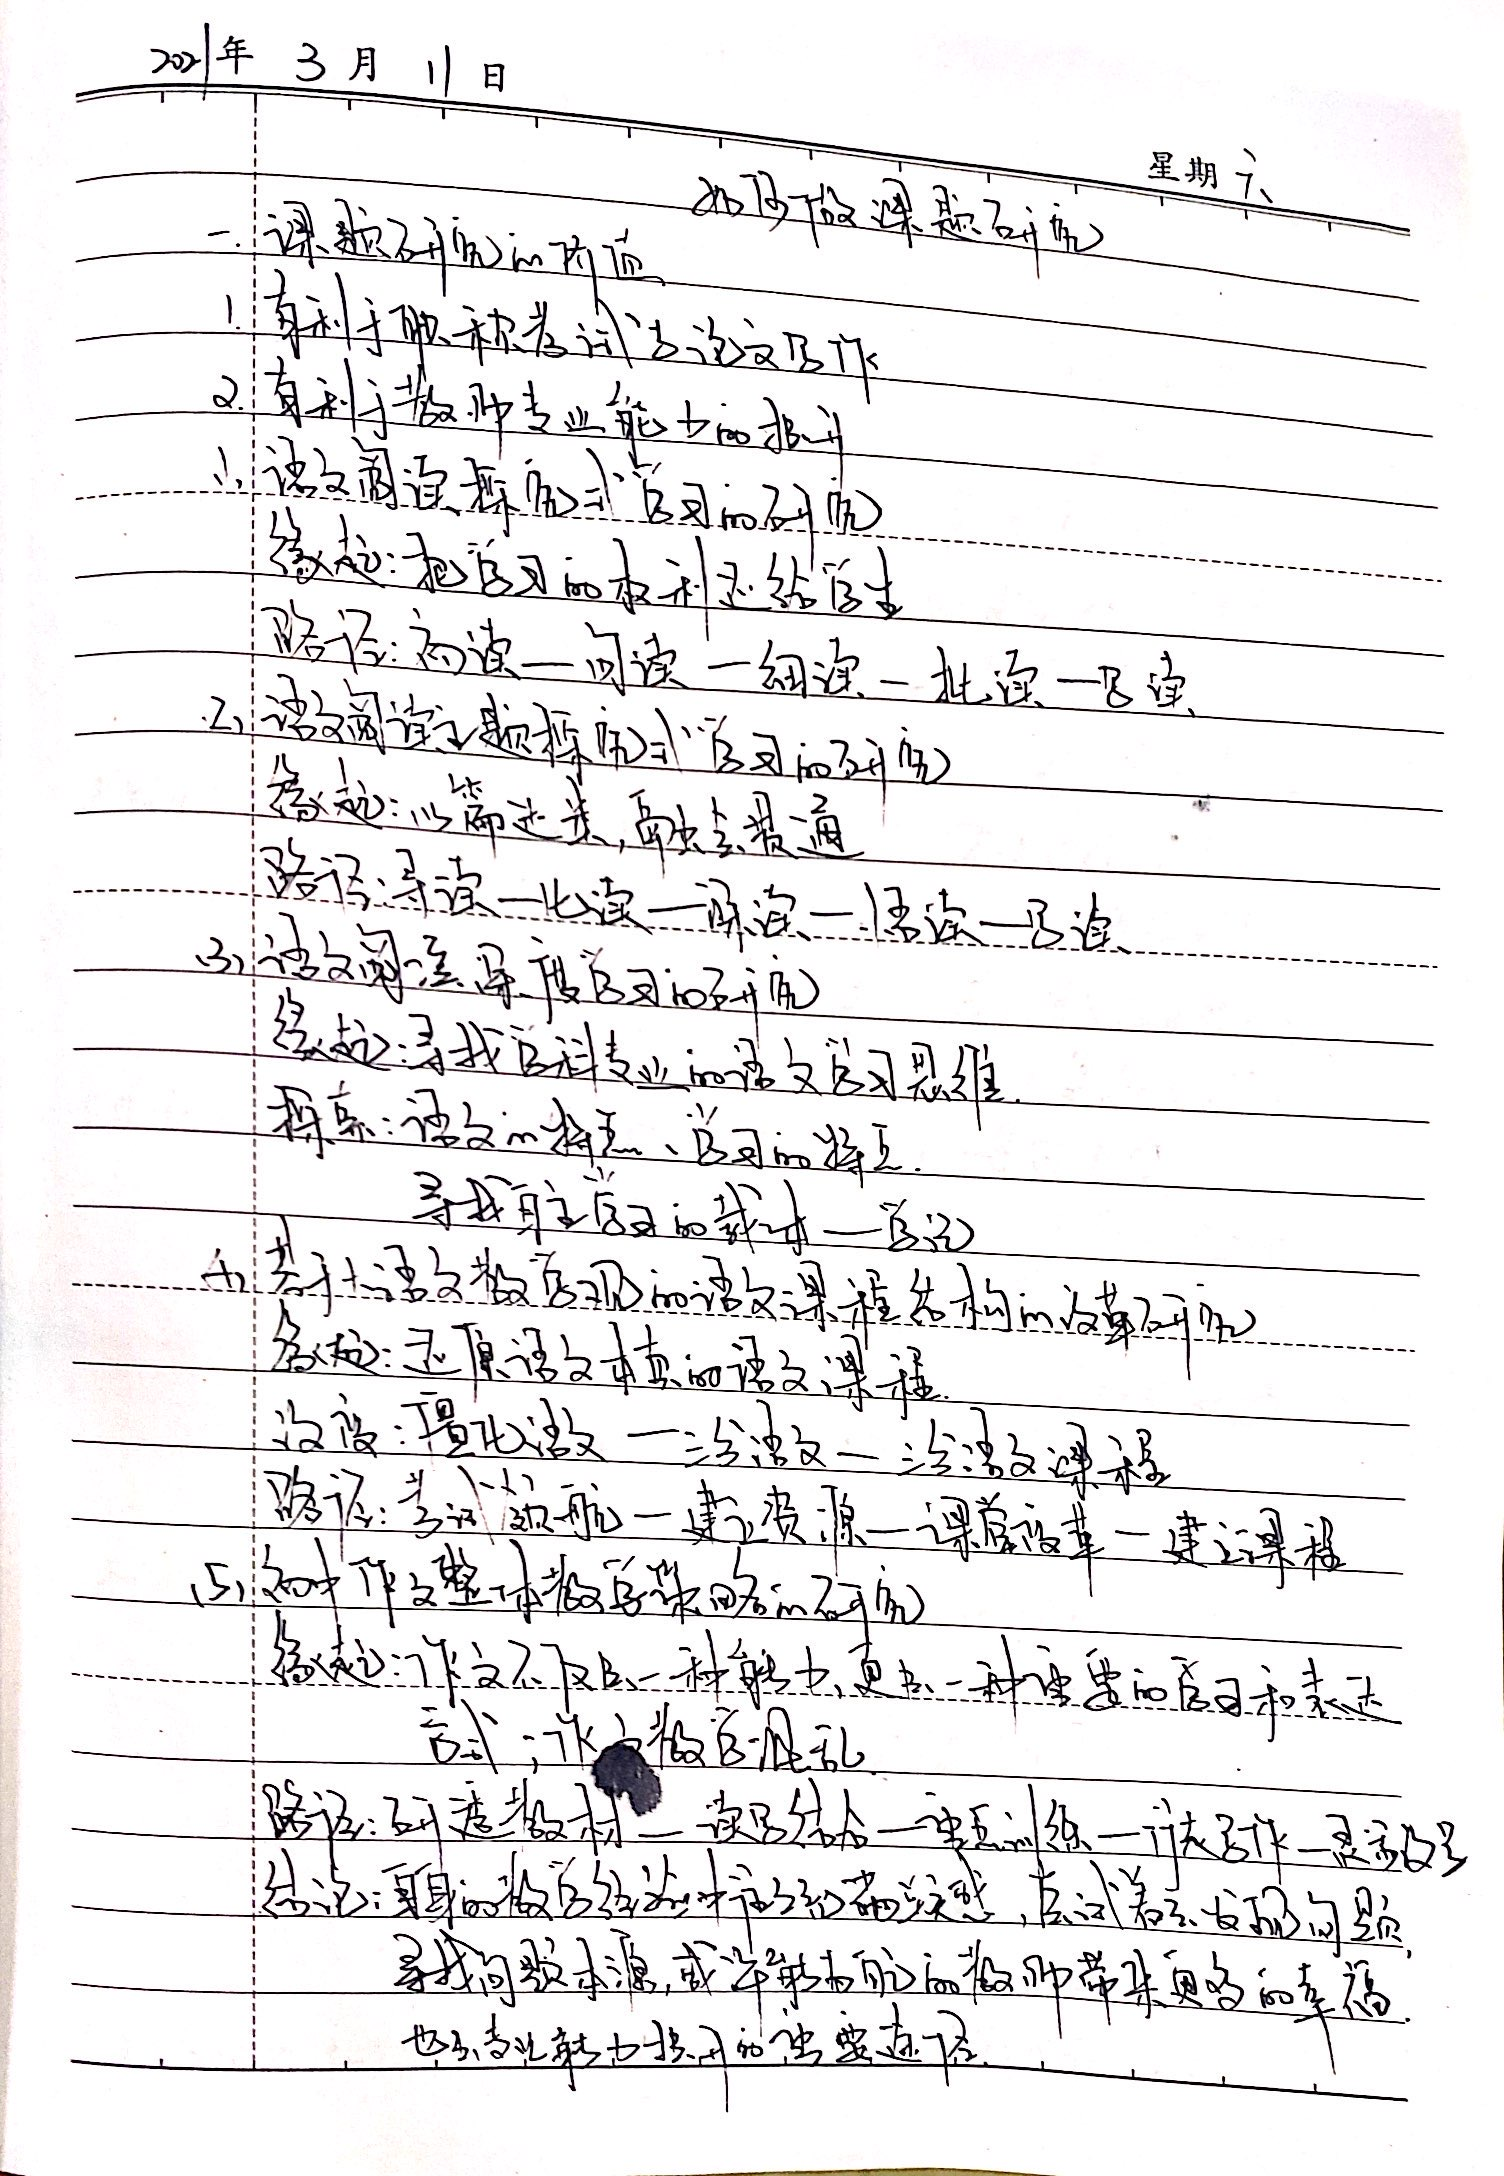 2021年 3月 11日
星期六
如何做课题研究
一. 课题研究的价值
1. 有利于职称考试与论文写作
2. 有利于教师专业能力的提升
(1) 语文阅读探究式学习的研究
缘起:把学习的权利还给学生
路径:初读—问读—细读—批读—写读
(2) 语文阅读主题探究式学习的研究
缘起:以篇达类,融会贯通
路径:寻读—比读—读—悟读—写读
(3) 语文阅读深度学习的研究
缘起:寻找学科专业的语文学习思维.
探索:语文的特点、学习的特点.
寻找自主学习的载体—学记
(4) 基于大语文教学观的语文课程结构的改革研究
缘起:还原语文本真的语文课程.
设度:量化语文—三分语文—三分语文课程
路径:考试领航—建立资源—课堂改革—建立课程
(5) 初中作文整体教学策略的研究
缘起:作文不仅是一种能力,更是一种重要的学习和表达
方式;作文教学混乱.
路径:研透教材—读写结合—重点训练—写作—
结论:的教学经验中,尝试着去发现问题,
寻找问题来源,或许能为所的教师带来更多的幸福.
也是专业能力提升的重要途径.